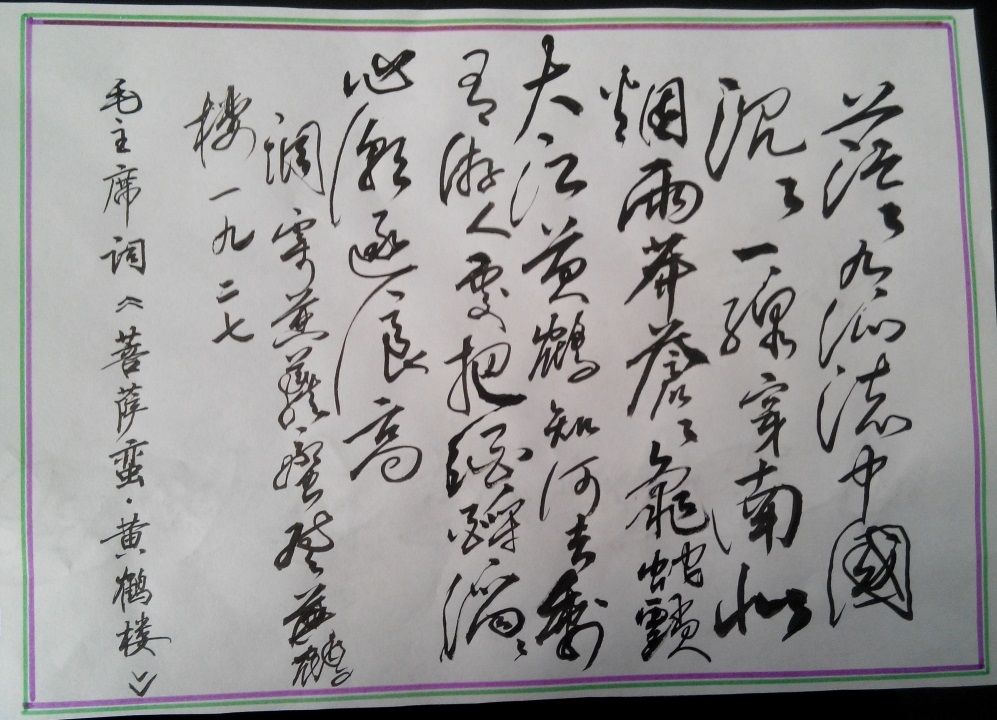 茫々九派流中國
沉々一線穿南北
烟雨莽蒼々龜蛇鎖
大江黄鶴知何去剩
有游人處把酒酹滔々
心潮逐浪高
調寄菩薩蠻登黄鶴
楼一九二七
毛主席词《菩萨蛮·黄鹤楼》